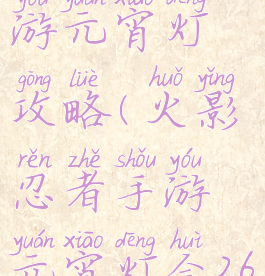 yóu yuán xiāo dēng
游元宵灯
gōng lüè huǒ yǐng
攻略(火影
rěn zhě shǒu yóu
忍者手游
yuán xiāo dēng huì
元宵灯会26